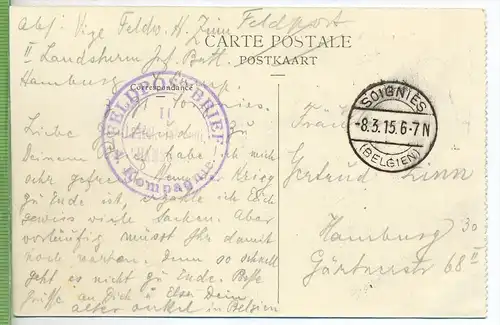 Abs: Vize Feldw. H. Zinn
Feldpost
II Landsturm Inf. Batt.
Hamburg
Comp.
CARTE POSTALE
POSTKAART
Correspondance
Soignies
FELDPOSTBRIEF
II
4 Kompagnie
SOIGNIES
-8.3.15.6-7N
(BELGIEN)
Liebe Gertrud
Deinem habe ich mich
sehr gefreut. Wenn Krieg
zu Ende ist, erzähle ich Euch
gewiss viele Sachen. Aber
vorläufig müsst Ihr damit
noch warten. Denn so schnell
geht es nicht zu Ende. Beste
Grüsse an Dich u Elsa Dein
alter Onkel in Belgien
Fräulein
Gertrud Zinn
Hamburg 30
Gärtnerstr 68 II